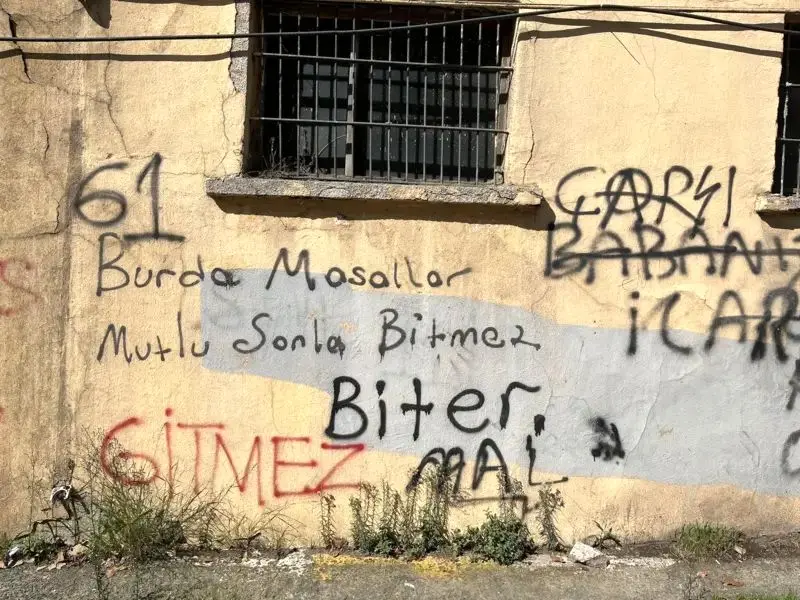 61
Burda Masallar
Mutlu Sonla Bitmez
Biter.
MAL
GİTMEZ
ÇARŞI
BABANI